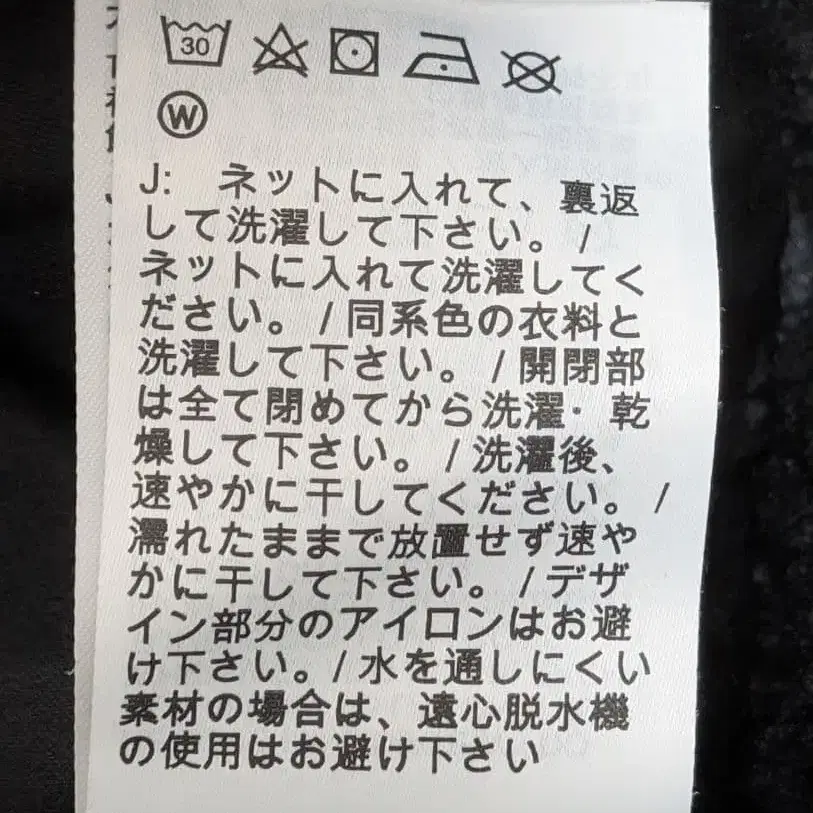 30
W
J: ネットに入れて、裏返
して洗濯して下さい。 /
ネットに入れて洗濯してく
ださい。 /同系色の衣料と
洗濯して下さい。 /開閉部
は全て閉めてから洗濯· 乾
燥して下さい。 /洗濯後、
速やかに干してください。 /
濡れたままで放置せず速や
かに干して下さい。 /デザ
イン部分のアイロンはお避
け下さい。/水を通しにくい
素材の場合は、遠心脱水機
の使用はお避け下さい